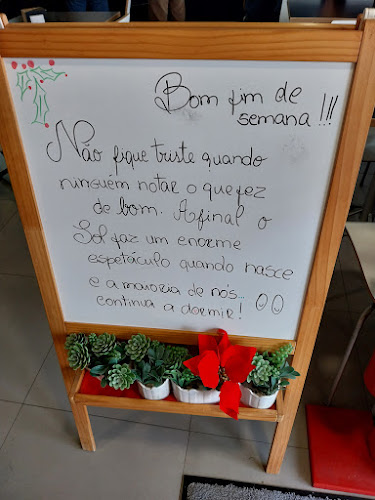 Bom fim de
semana!!!
Não fique triste quando
ninguém notar o que fez
de bom. Afinal o
Sol faz um enorme
espetáculo quando nasce
e a maioria de nós...
continua a dormir!